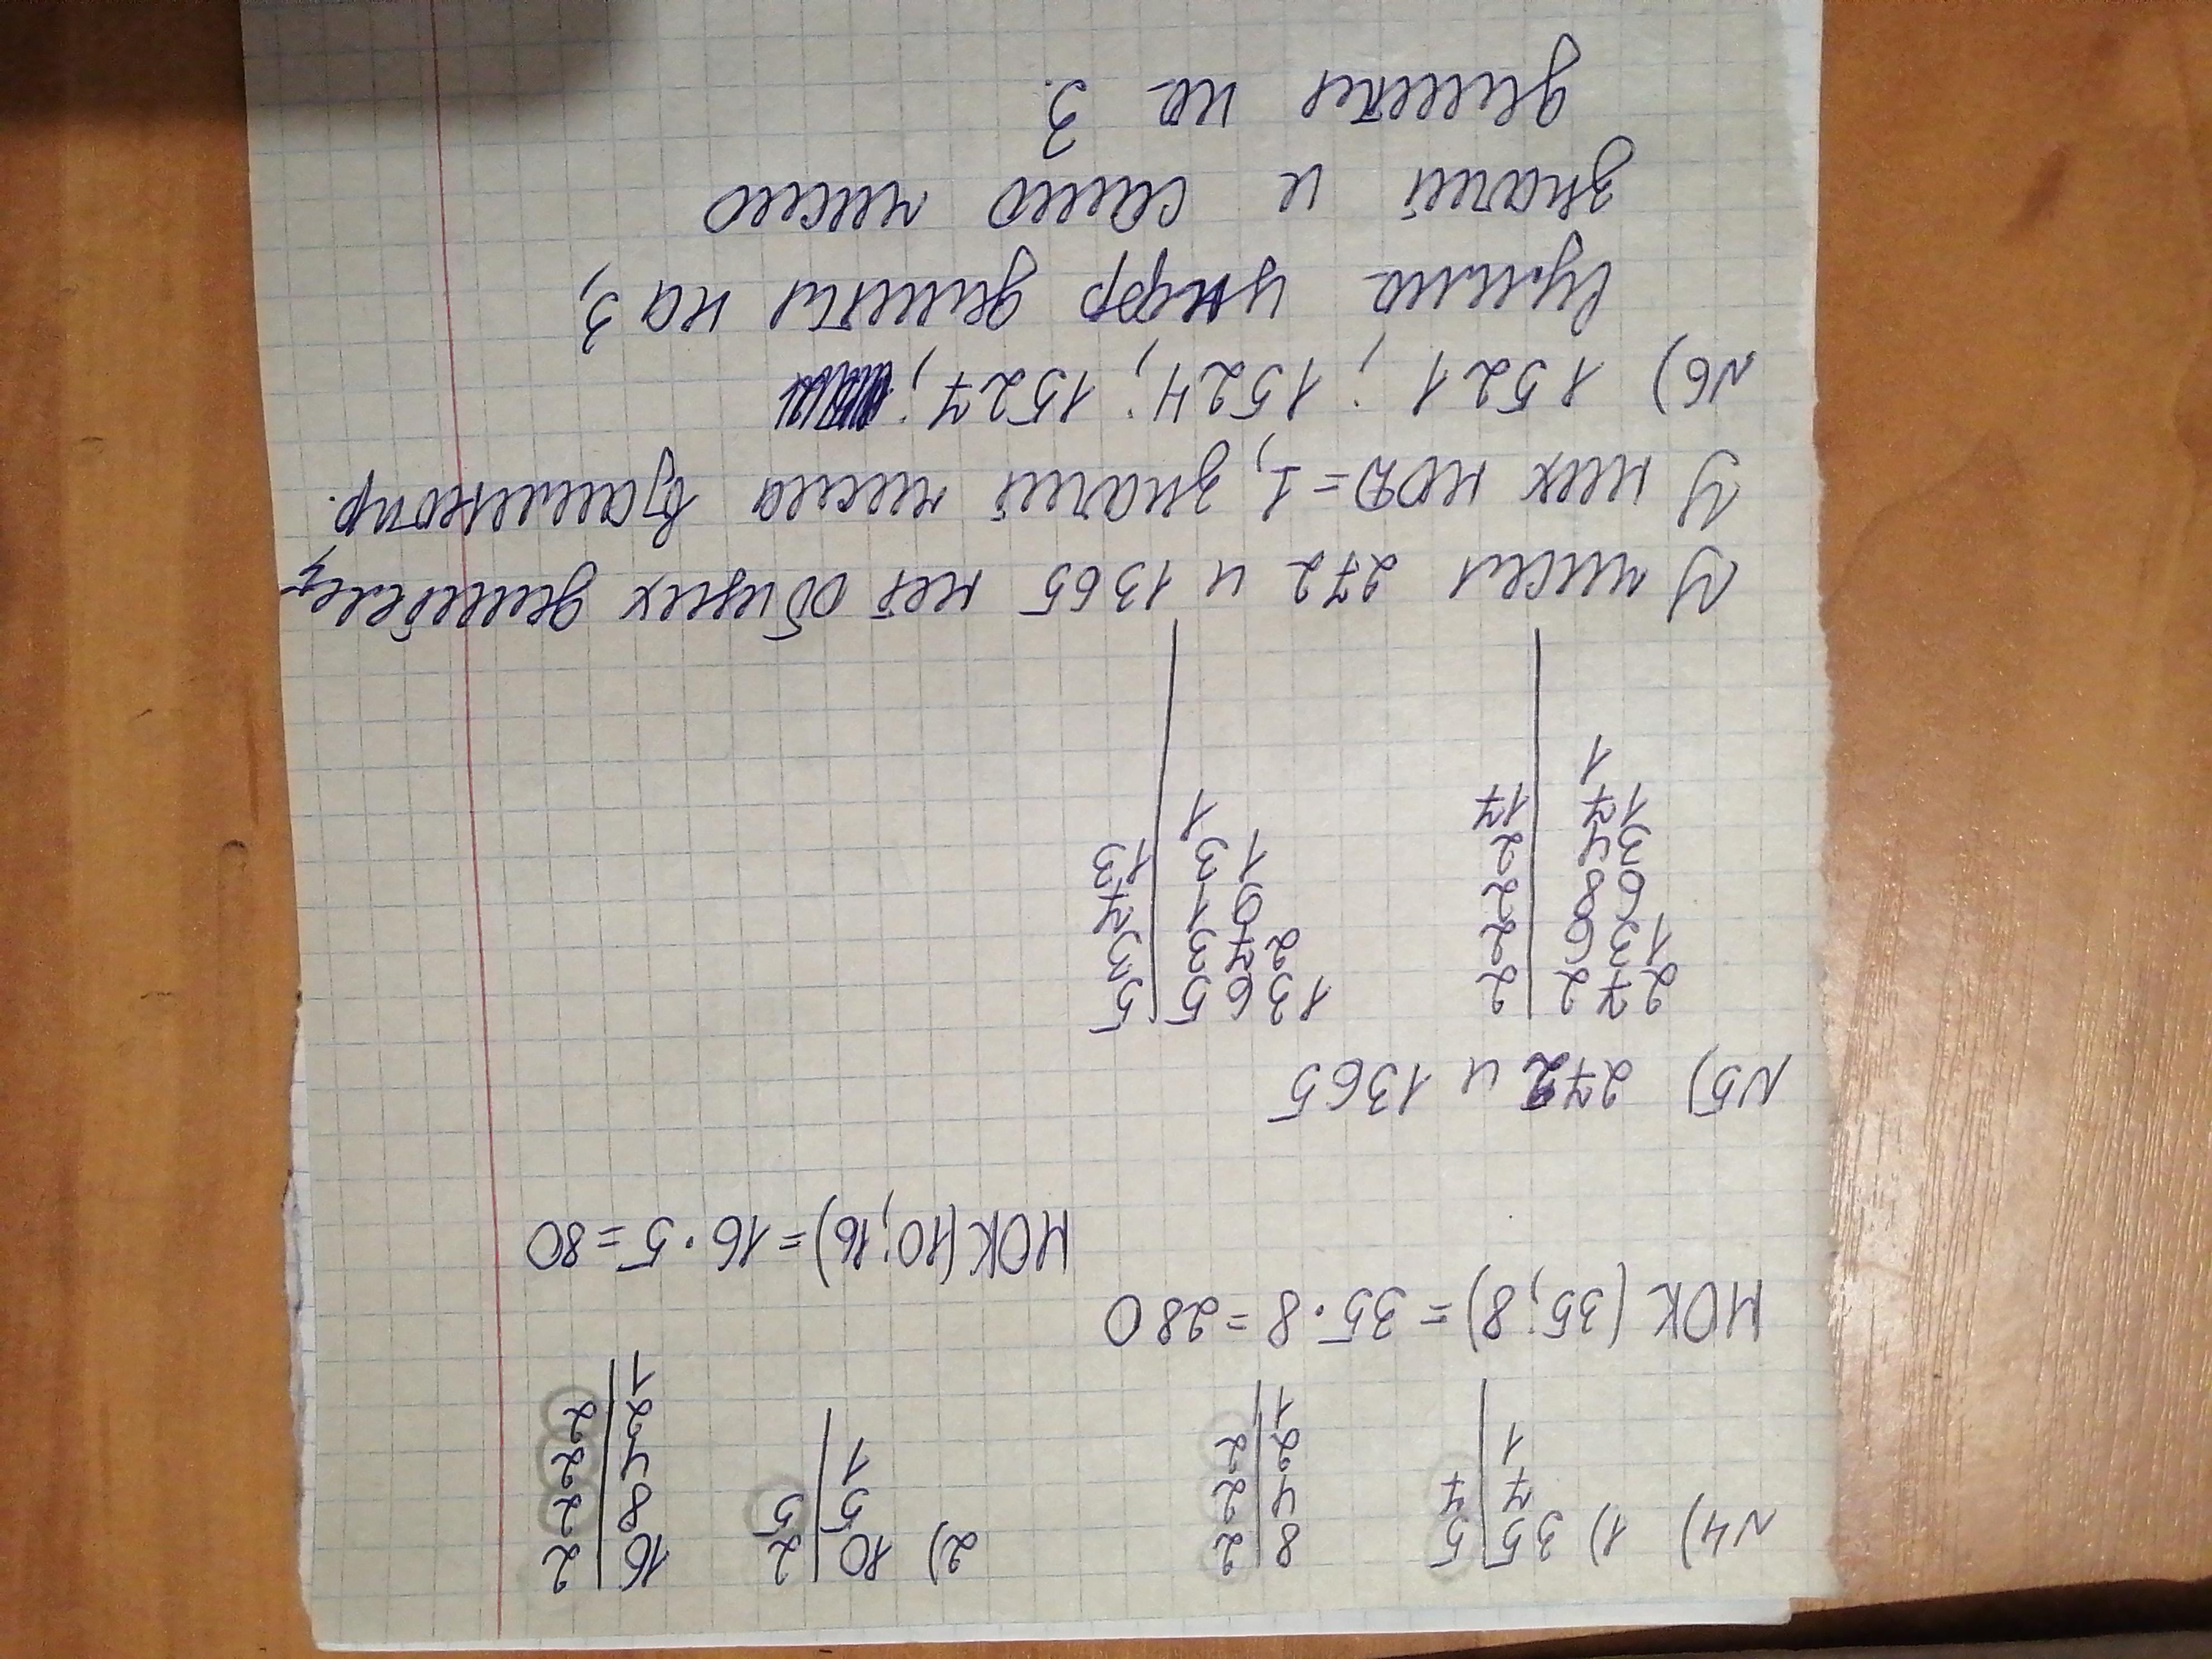 N4) 1) 35 | 5    8 | 2    2) 10 | 2    16 | 2
7 | 7    4 | 2    5 | 5    8 | 2
1 |    2 | 2    1 |    4 | 2
1 |    2 | 2
1 |
НОК (35; 8) = 35 · 8 = 280    НОК (10; 16) = 16 · 5 = 80
N5) 272 и 1365
272 | 2    1365 | 5
136 | 2    273 | 3
68 | 2    91 | 7
34 | 2    13 | 13
17 | 17    1 |
1 |
У чисел 272 и 1365 нет общих делителей,
У них НОД = 1, значит числа взаимнопр.
N6) 1521 ; 1524; 1527;
Сумма цифр делится на 3,
значит и само число
делится на 3.